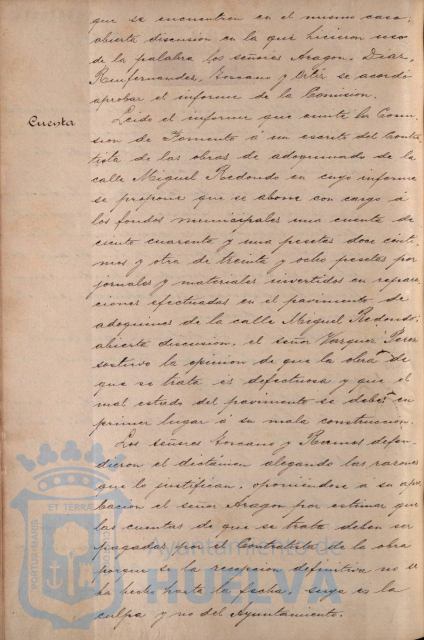 que se encuentren en el mismo caso,
abierta discusión en la que hicieron uso
de la palabra los señores Aragon, Diaz,
Renfernandez, y Ortiz se acordó
aprobar el informe de la Comision.
Cuenta
Leido el informe que emite la Comi-
sion de Fomento á un escrito del Contra-
tista de las obras de adoquinado de la
calle Miguel Redondo en cuyo informe
se propone que se abone con cargo á
los fondos municipales una cuenta de
ciento cuarenta y una pesetas doce cénti-
mos y otra de treinta y ocho pesetas por
jornales y materiales invertidos en repara-
ciones efectuadas en el pavimento de
adoquines de la calle Miguel Redondo,
abierta discusión, el señor Vazquez Perez
sostuvo la opinion de que la obra de
que se trata es defectuosa y que el
mal estado del pavimento se debe en
primer lugar á su mala construccion.
Los señores y Ramos defen-
dieron el dictámen alegando las razones
que lo justifican, oponiendose á su apro-
bacion el señor Aragon por estimar que
las cuentas de que se trata deben ser
pagadas por el Contratista de la obra
porque si la recepcion definitiva no se
ha hecho hasta la fecha, suya es la
culpa y no del Ayuntamiento.
PORTUS MARIS ET TERRAE
Ayuntamiento de
HUELVA